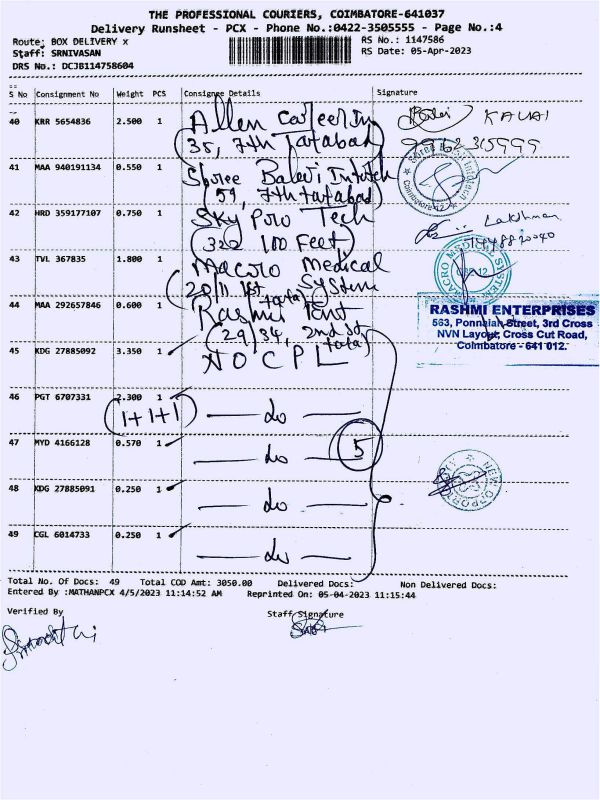 THE PROFESSIONAL COURIERS, COIMBATORE-641037
Delivery Runsheet - PCX - Phone No.:0422-3505555 - Page No.:4
Route: BOX DELIVERY x
RS No.: 1147586
Staff: SRNIVASAN
RS Date: 05-Apr-2023
DRS No.: DCJB114758604
S No Consignment No Weight PCS Consignee Details Signature
40 KRR 5654836 2.500 1 Allen Career In KALAI
(35, 7th Tatabad)
41 MAA 940191134 0.550 1 Shree Balaji Infotech
(59, 7th tatabad)
42 HRD 359177107 0.750 1 Sky Pro Tech Lakshman
(322 100 Feet)
43 TVL 367835 1.800 1 Macro Medical
System
44 MAA 292657846 0.600 1 Rashmi Ent
(29/34, 2nd st tata)
RASHMI ENTERPRISES
563, Ponnaian Street, 3rd Cross
NVN Layout, Cross Cut Road,
Coimbatore - 641 012.
45 KDG 27885092 3.350 1 NOCPL
46 PGT 6707331 2.300 1 do
(1+1+1)
47 MYD 4166128 0.570 1 do 5
48 KDG 27885091 0.250 1 do
49 CGL 6014733 0.250 1 do
Total No. Of Docs: 49 Total COD Amt: 3050.00 Delivered Docs: Non Delivered Docs:
Entered By :MATHANPCX 4/5/2023 11:14:52 AM Reprinted On: 05-04-2023 11:15:44
Verified By Staff Signature